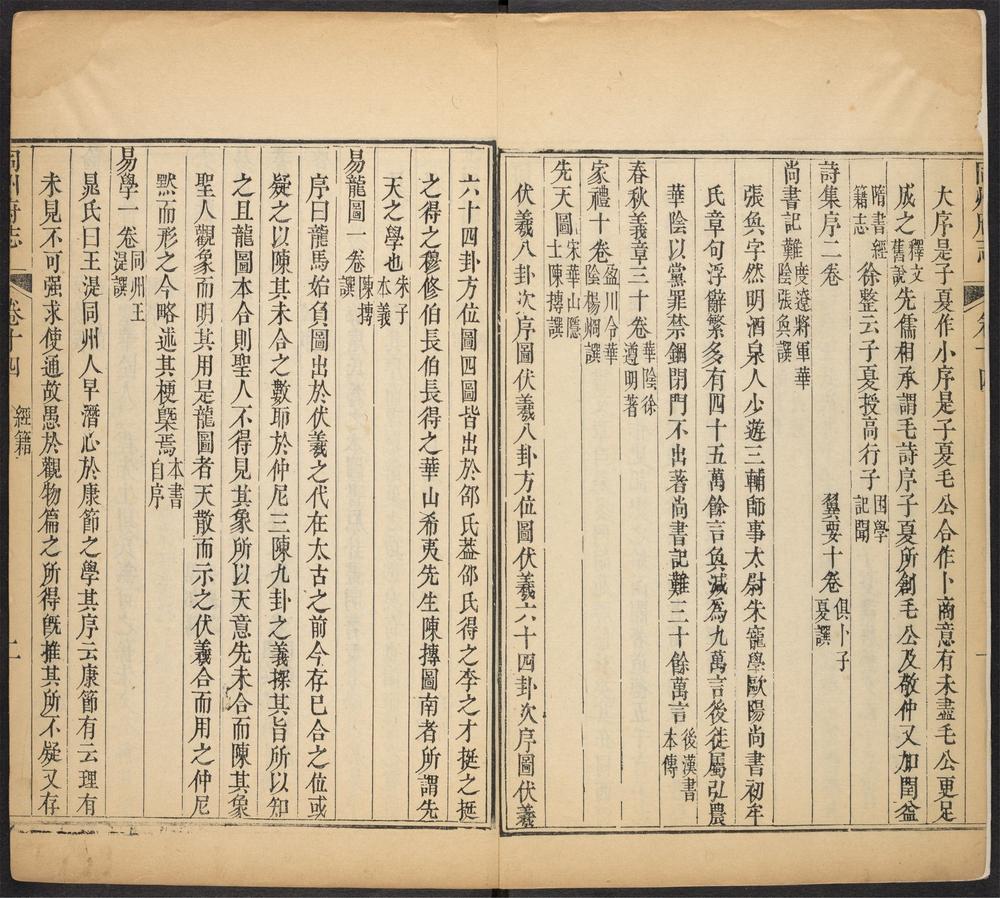 大序是子夏作小序是子夏毛公合作卜商意有未盡毛公更足
成之釋文舊說先儒相承謂毛詩序子夏所創毛公及敬仲又加閏益
隋書經籍志徐整云子夏授高行子困學記聞
詩集序二卷 翼要十卷俱卜子夏譔
尚書記難度遼將軍華陰張奐譔
張奐字然明酒泉人少遊三輔師事太尉朱寵學歐陽尚書初牟
氏章句浮辭繁多有四十五萬餘言奐減為九萬言後徙屬弘農
華陰以黨罪禁錮閉門不出著尚書記難三十餘萬言後漢書本傳
春秋義章三十卷華陰徐遵明著
家禮十卷盈川令華陰楊烱譔
先天圖宋華山隱士陳摶譔
伏羲八卦次序圖伏羲八卦方位圖伏羲六十四卦次序圖伏羲
六十四卦方位圖四圖皆出於邵氏葢邵氏得之李之才挺之挺
之得之穆修伯長伯長得之華山希夷先生陳摶圖南者所謂先
天之學也朱子本義
易龍圖一卷陳摶譔
序曰龍馬始負圖出於伏羲之代在太古之前今存已合之位或
疑之以陳其未合之數耶於仲尼三陳九卦之義探其旨所以知
之且龍圖本合則聖人不得見其象所以天意先未合而陳其象
聖人觀象而明其用是龍圖者天散而示之伏羲合而用之仲尼
默而形之今略述其梗槩焉本書自序
易學一卷同州王湜譔
晁氏曰王湜同州人早潛心於康節之學其序云康節有云理有
未見不可强求使通故愚於觀物篇之所得旣推其所不疑又存
同州府志 卷十四 經籍 二